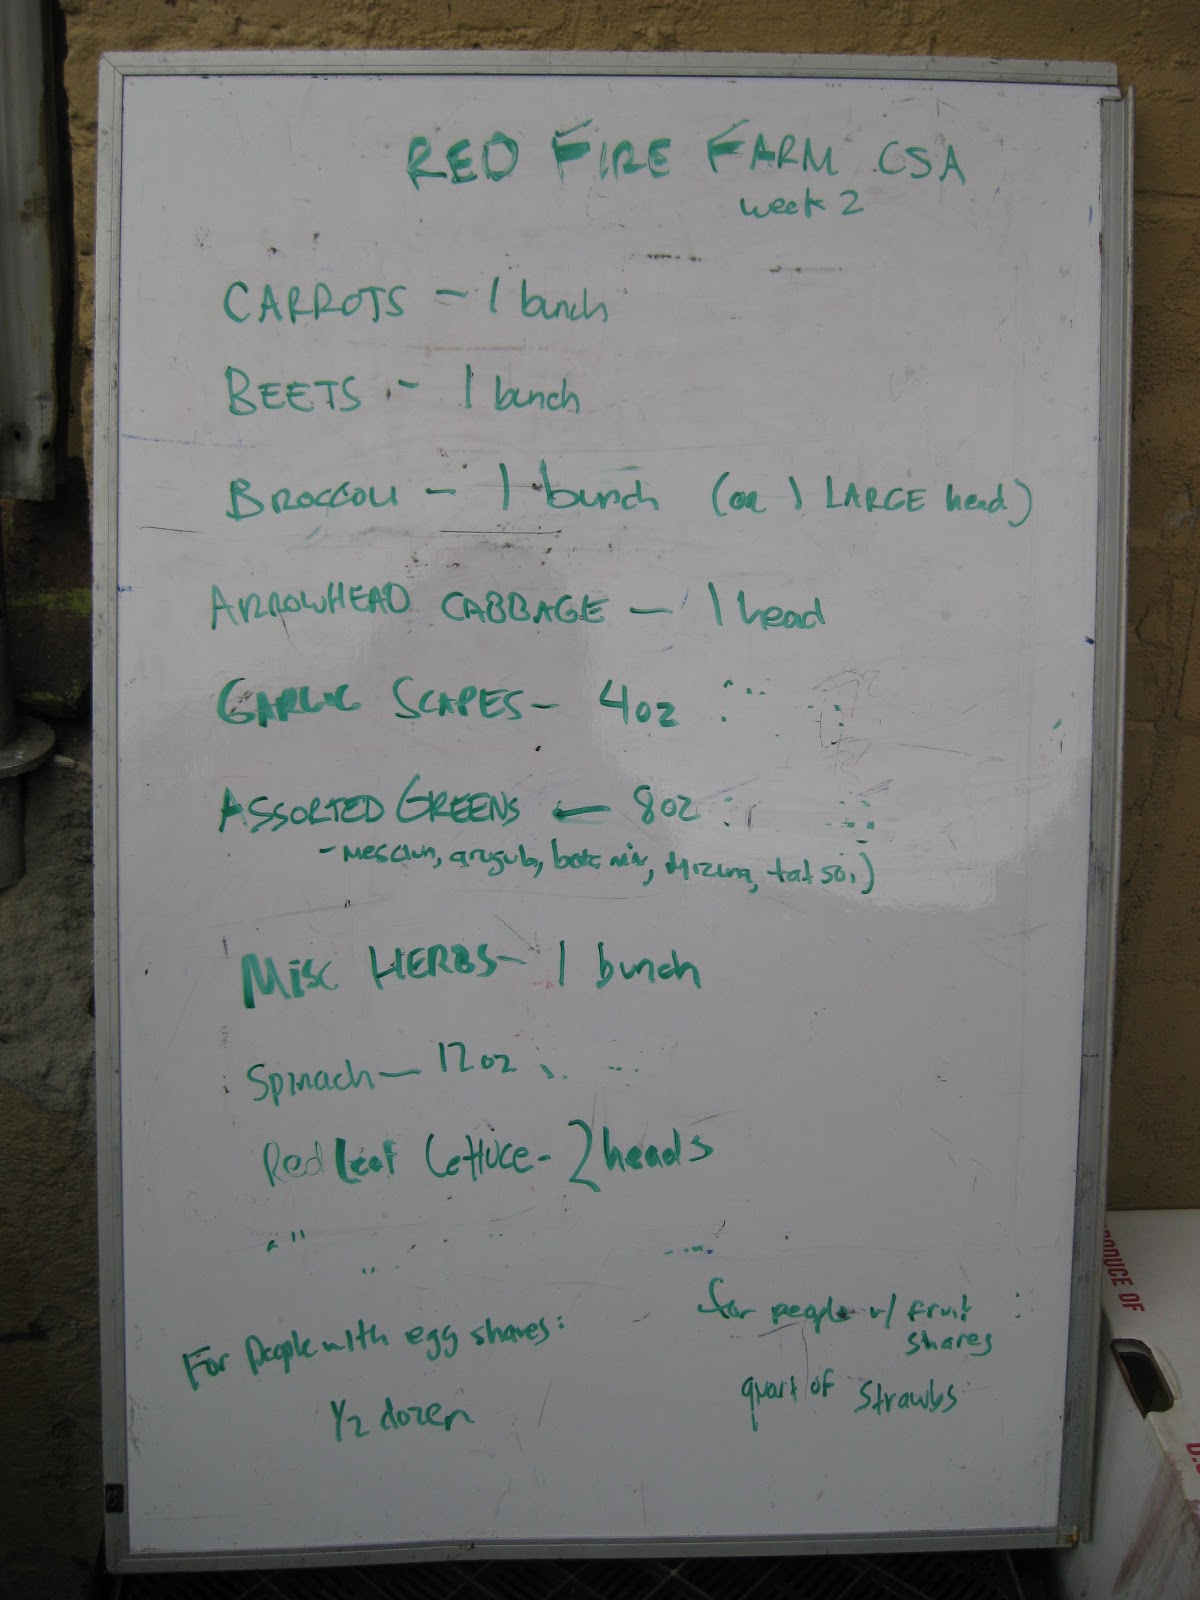 RED FIRE FARM CSA
week 2
CARROTS - 1 bunch
BEETS - 1 bunch
BROCCOLI - 1 bunch (or 1 LARGE head)
ARROWHEAD CABBAGE - 1 head
GARLIC SCAPES - 4oz
ASSORTED GREENS - 8oz
- mesclun, arugula, bok mix, mizuna, tat soi)
MISC HERBS - 1 bunch
Spinach - 12oz
Red leaf lettuce - 2 heads
For people with egg shares:
1/2 dozen
for people w/ fruit
shares
quart of strawbs
PRODUCE OF